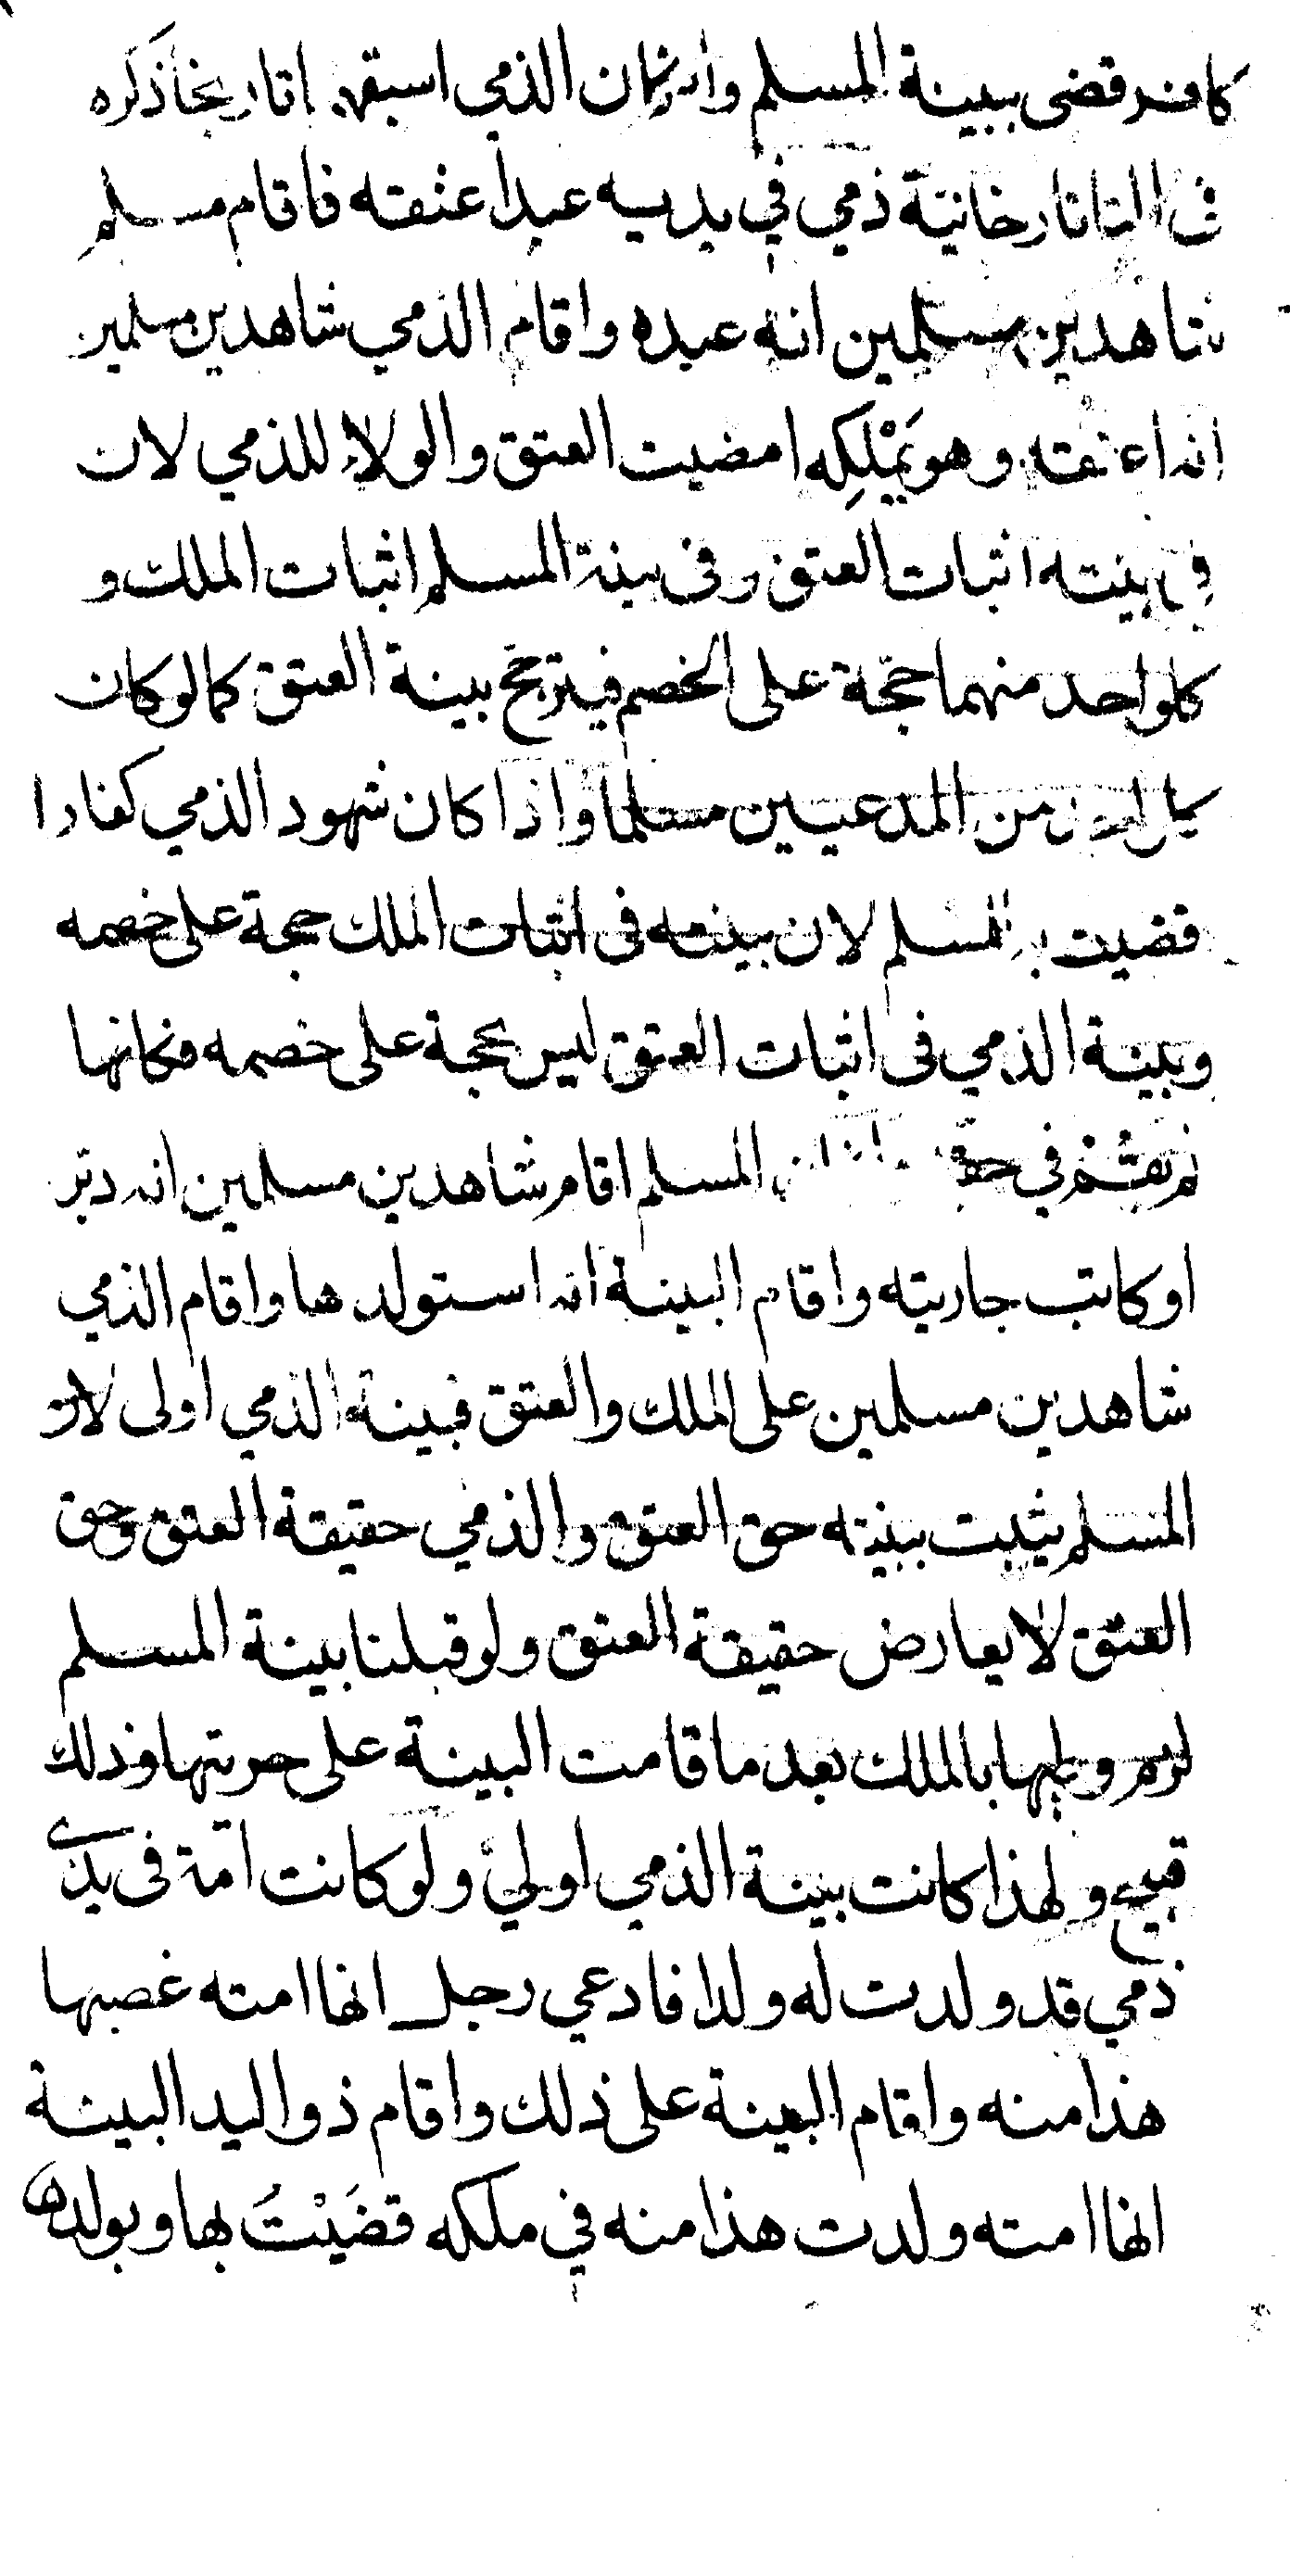 كافر قضى ببينة المسلم وان كان الذمي اسبقهما تاريخا ذكره
في التاتارخانية ذمي في يديه عبد اعتقه فاقام مسلم
شاهدين مسلمين انه عبده واقام الذمي شاهدين مسلمين
انه اعتقه وهو يَمْلِكه امضيت العتق والولاء للذمي لان
في بينته اثبات العتق وفى بينة المسلم اثبات الملك و
كلواحد منهما حجّة على الخصم فيترجّح بينة العتق كمالوكان
كل من المدعيين مسلما واذا كان شهود الذمي كفارا
قضيت به للمسلم لان بينته فى اثبات الملك حجة على خصمه
وبينة الذمي فى اثبات العتق ليس بحجة على خصمه فكانها
لم تقم في حقه المسلم اقام شاهدين مسلمين انه دبّر
او كاتب جاريته واقام البينة انه استولدها واقام الذمي
شاهدين مسلمين على الملك والعتق فبينة الذمي اولى لان
المسلم يثبت ببينته حق العتق والذمي حقيقة العتق وحق
العتق لا يعارض حقيقة العتق ولو قبلنا بينة المسلم
بالملك بعد ما قامت البينة على حريتها وذلك
قبيح ولهذا كانت بينة الذمي اولي ولو كانت امة فى يدى
ذمي قد ولدت له ولدا فادعي رجل انها امته غصبها
هذا منه واقام البينة على ذلك واقام ذو اليد البينة
انها امته ولدت هذا منه في ملكه قضَيْتُ بها وبولدها